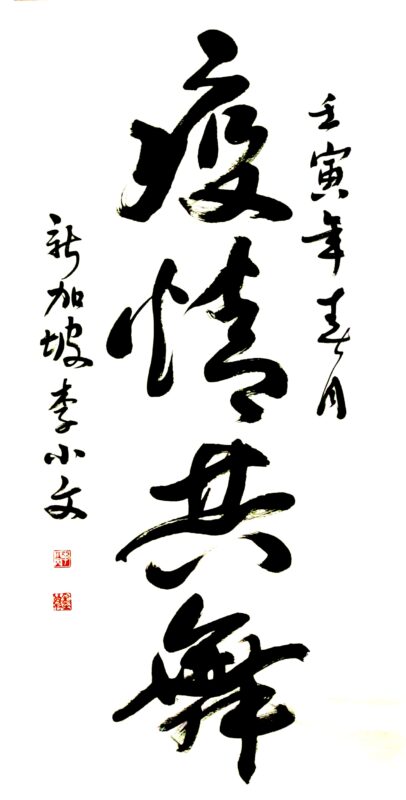 壬寅年春月
疫情共舞
新加坡李小文